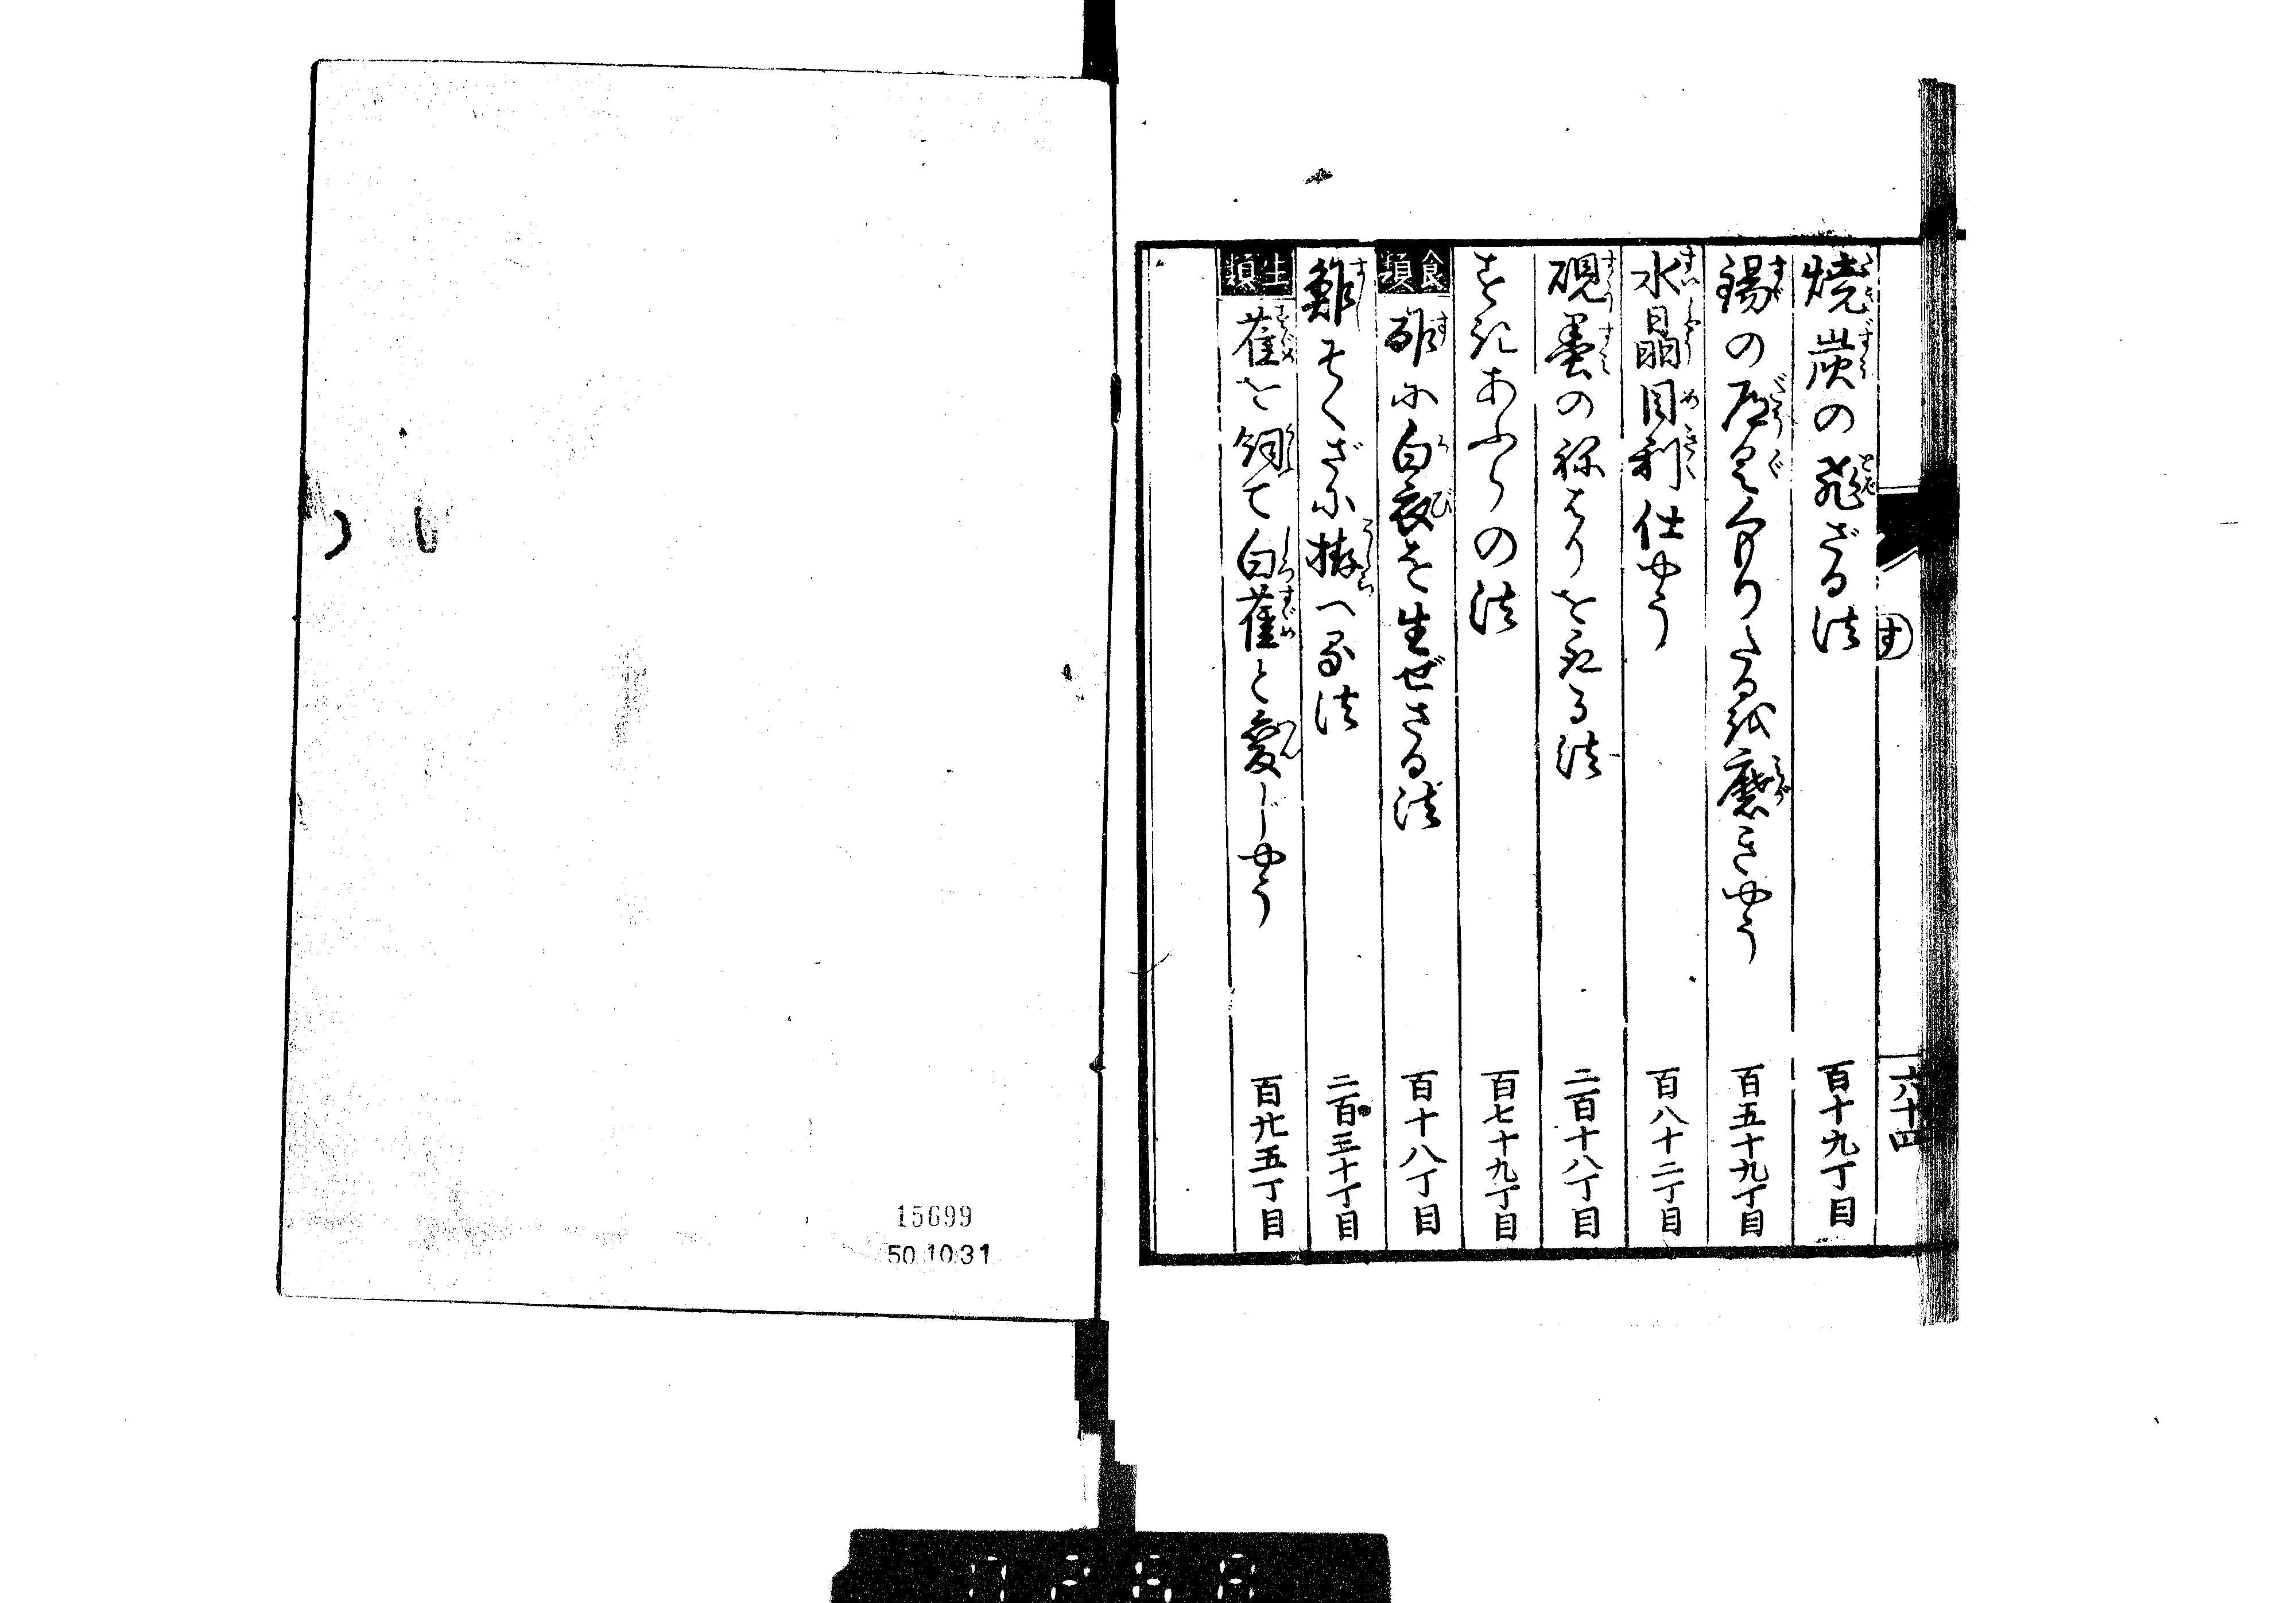 す
六十四
焼炭の飛ざる法
百十九丁目
錫の道具くもりたるを磨きやう
百五十九丁目
水晶目利仕やう
百八十二丁目
硯墨の祢をりを取る法
二百十八丁目
すきあふらの法
百七十九丁目
食類
酢に白衣を生ぜざる法
百十八丁目
鮓をくさに拵へる法
二百三十丁目
生類
雀を飼て白雀と変じやう
百廿五丁目
15699
50.10.31